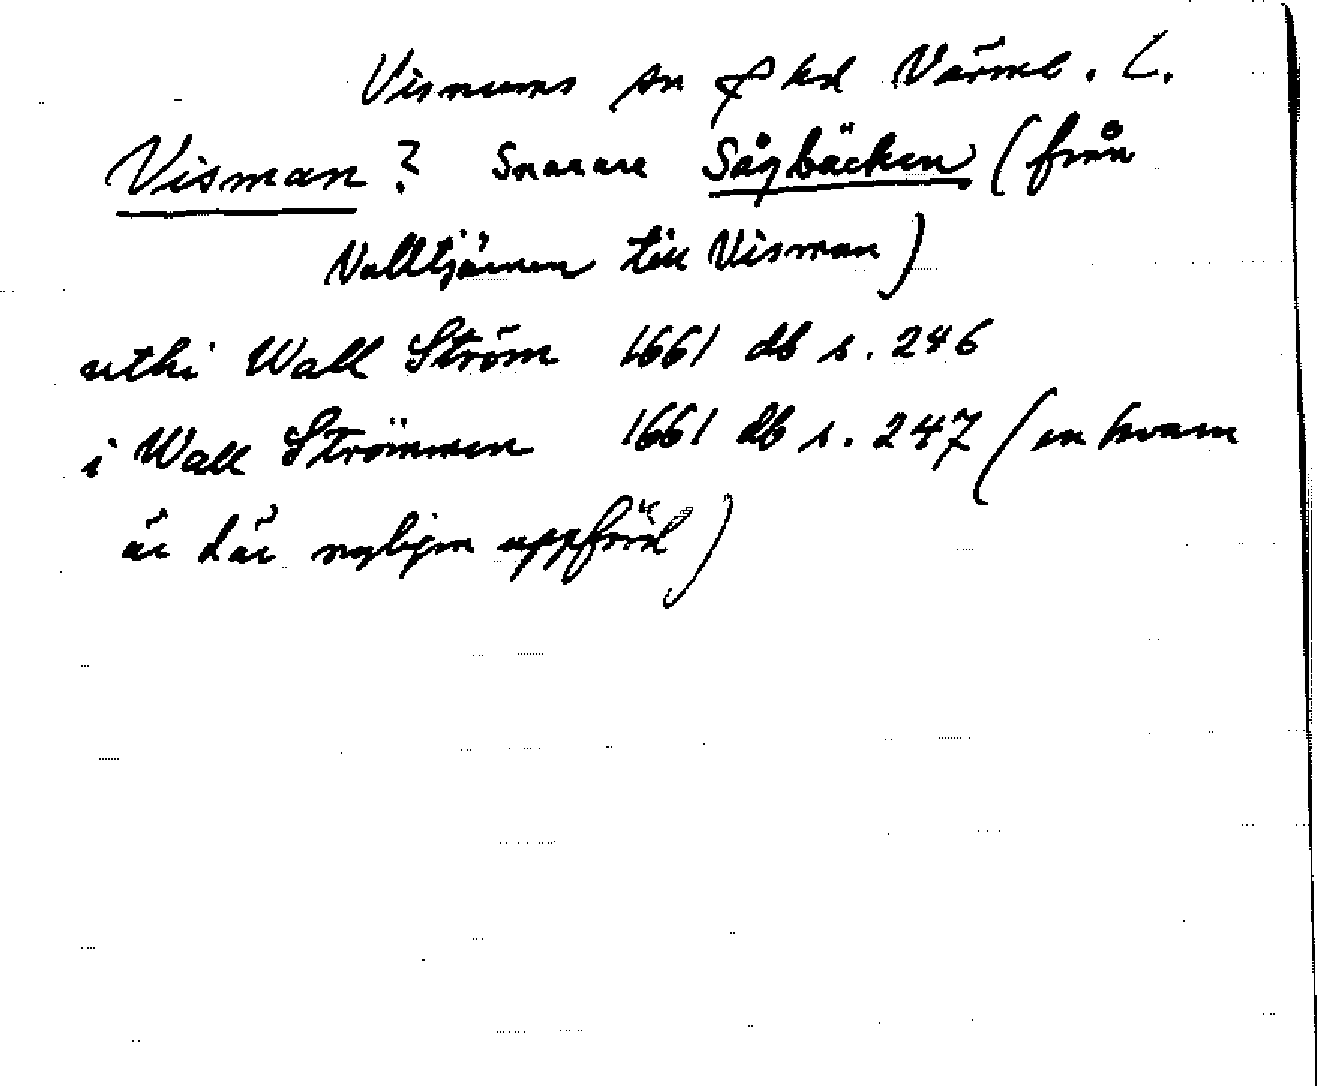 Visnums sn o hd Värml. L.
Visman? Snarare Sågbäcken (från
Valltjärnen till Visman)
uthi Wall Ström 1661 db s. 246
i Wall Strömmen 1661 db s. 247 (en kvarn
är där nyligen uppförd)